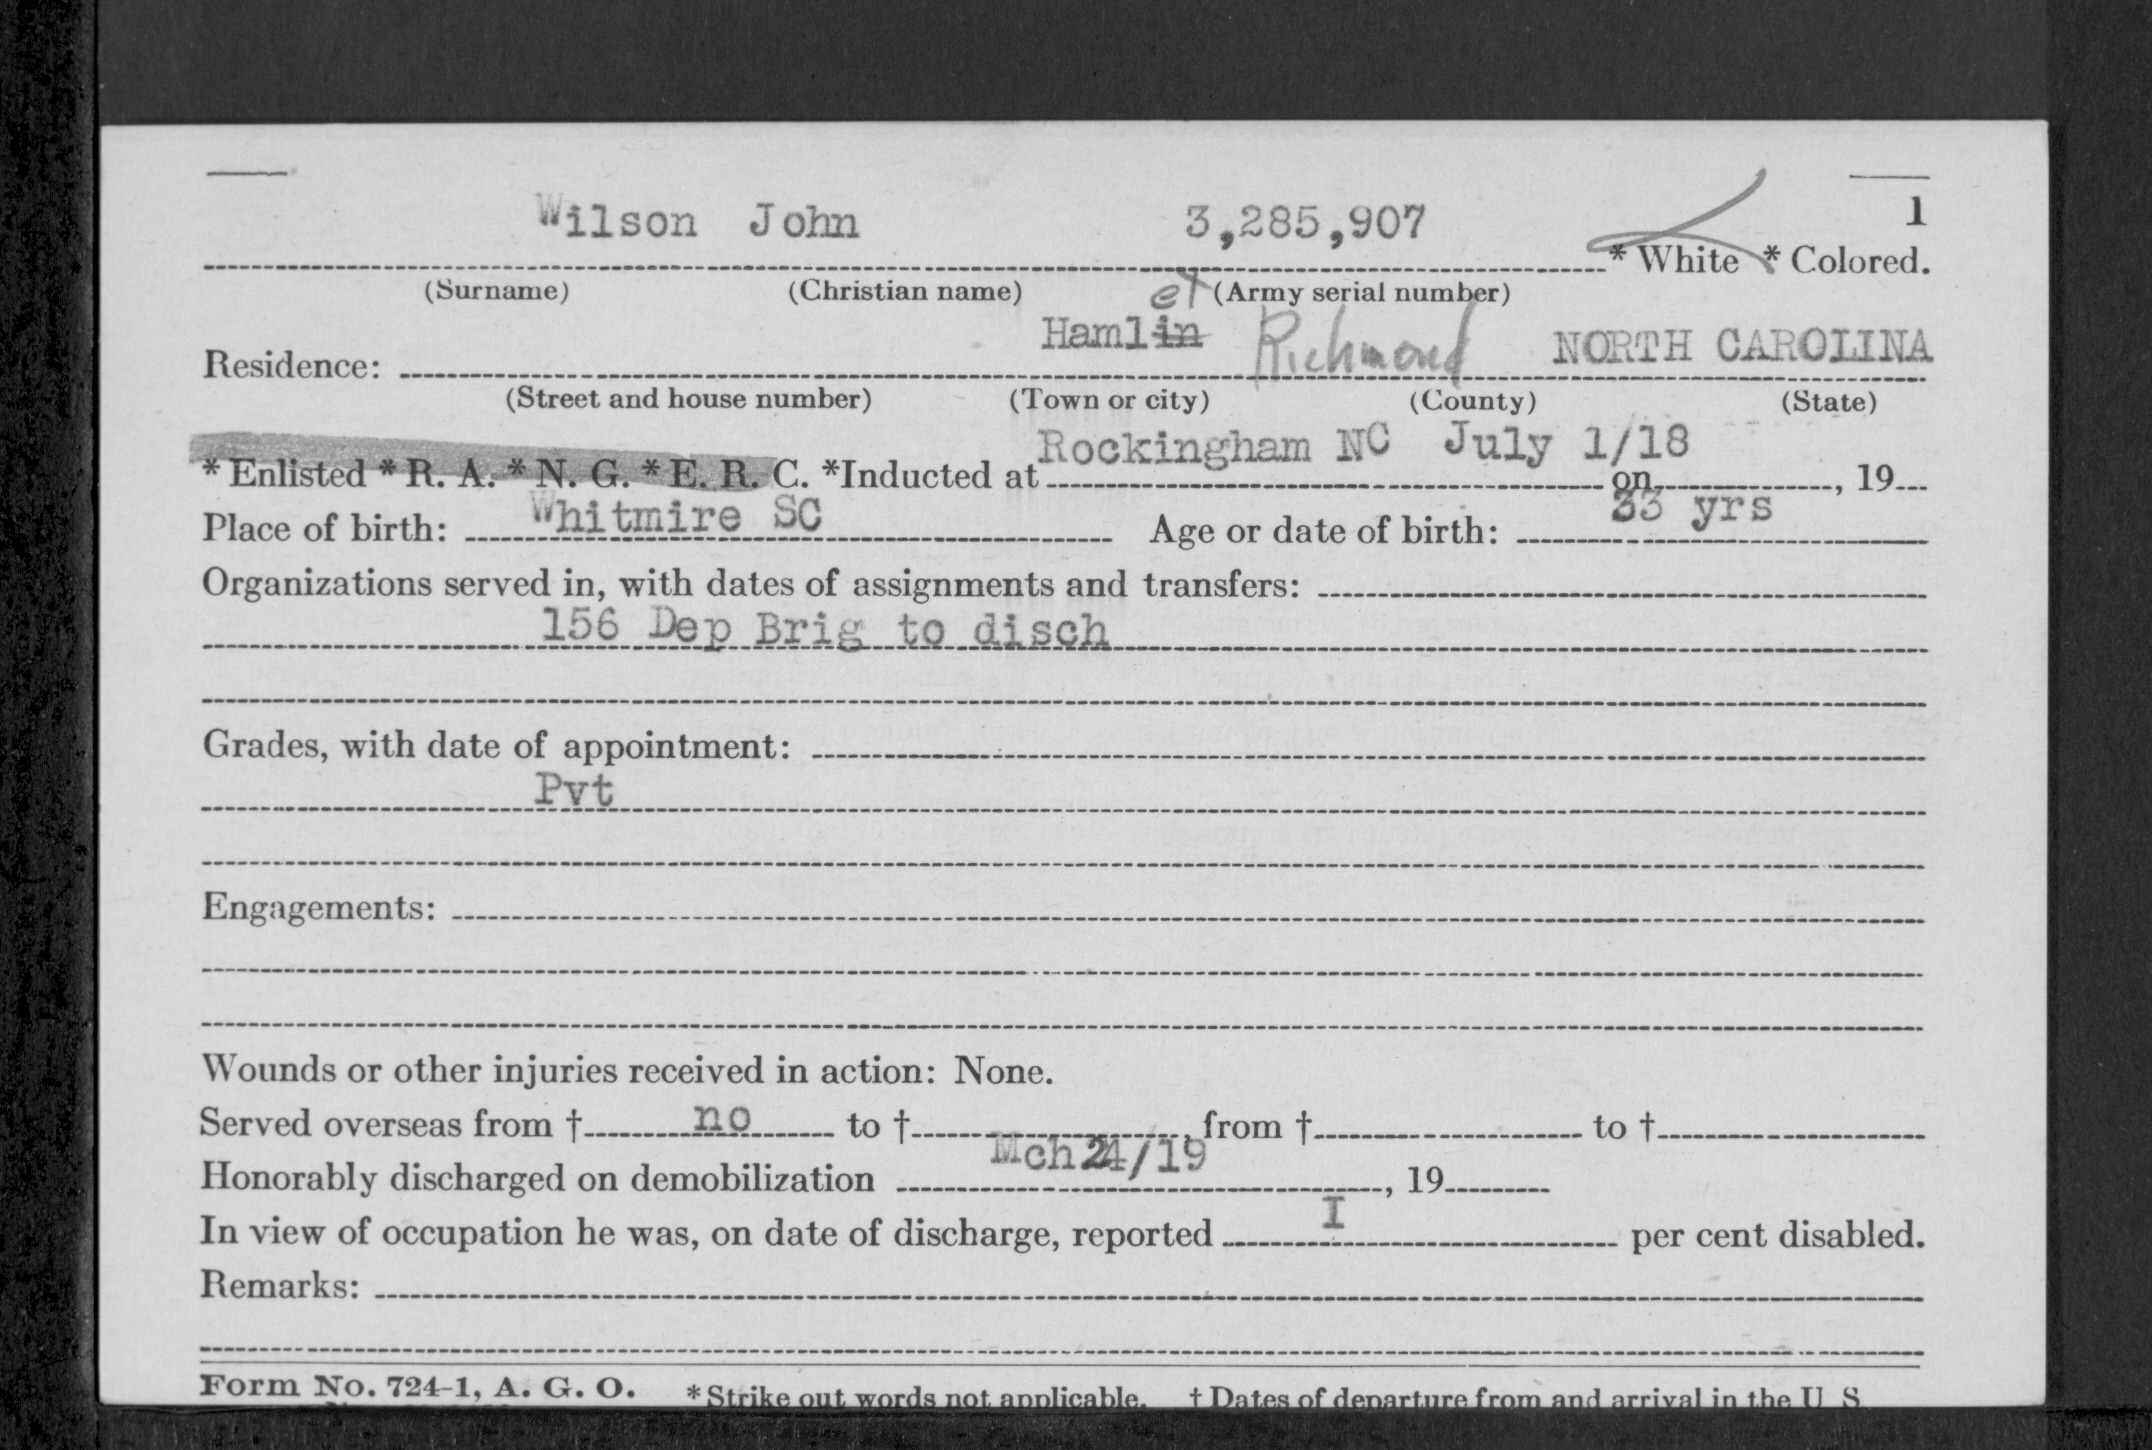 1
Wilson John 3,285,907 * White * Colored.
(Surname) (Christian name) (Army serial number)
et
Residence: Hamlin Richmond NORTH CAROLINA
(Street and house number) (Town or city) (County) (State)
Rockingham NC July 1/18
* Enlisted * R. A. * N. G. * E. R. C. *Inducted at on , 19
Place of birth: Whitmire SC Age or date of birth: 33 yrs
Organizations served in, with dates of assignments and transfers:
156 Dep Brig to disch
Grades, with date of appointment:
Pvt
Engagements:
Wounds or other injuries received in action: None.
Served overseas from † no to † , from † to †
Honorably discharged on demobilization Mch 24/19 , 19
In view of occupation he was, on date of discharge, reported I per cent disabled.
Remarks:
Form No. 724-1, A. G. O. * Strike out words not applicable. † Dates of departure from and arrival in the U S